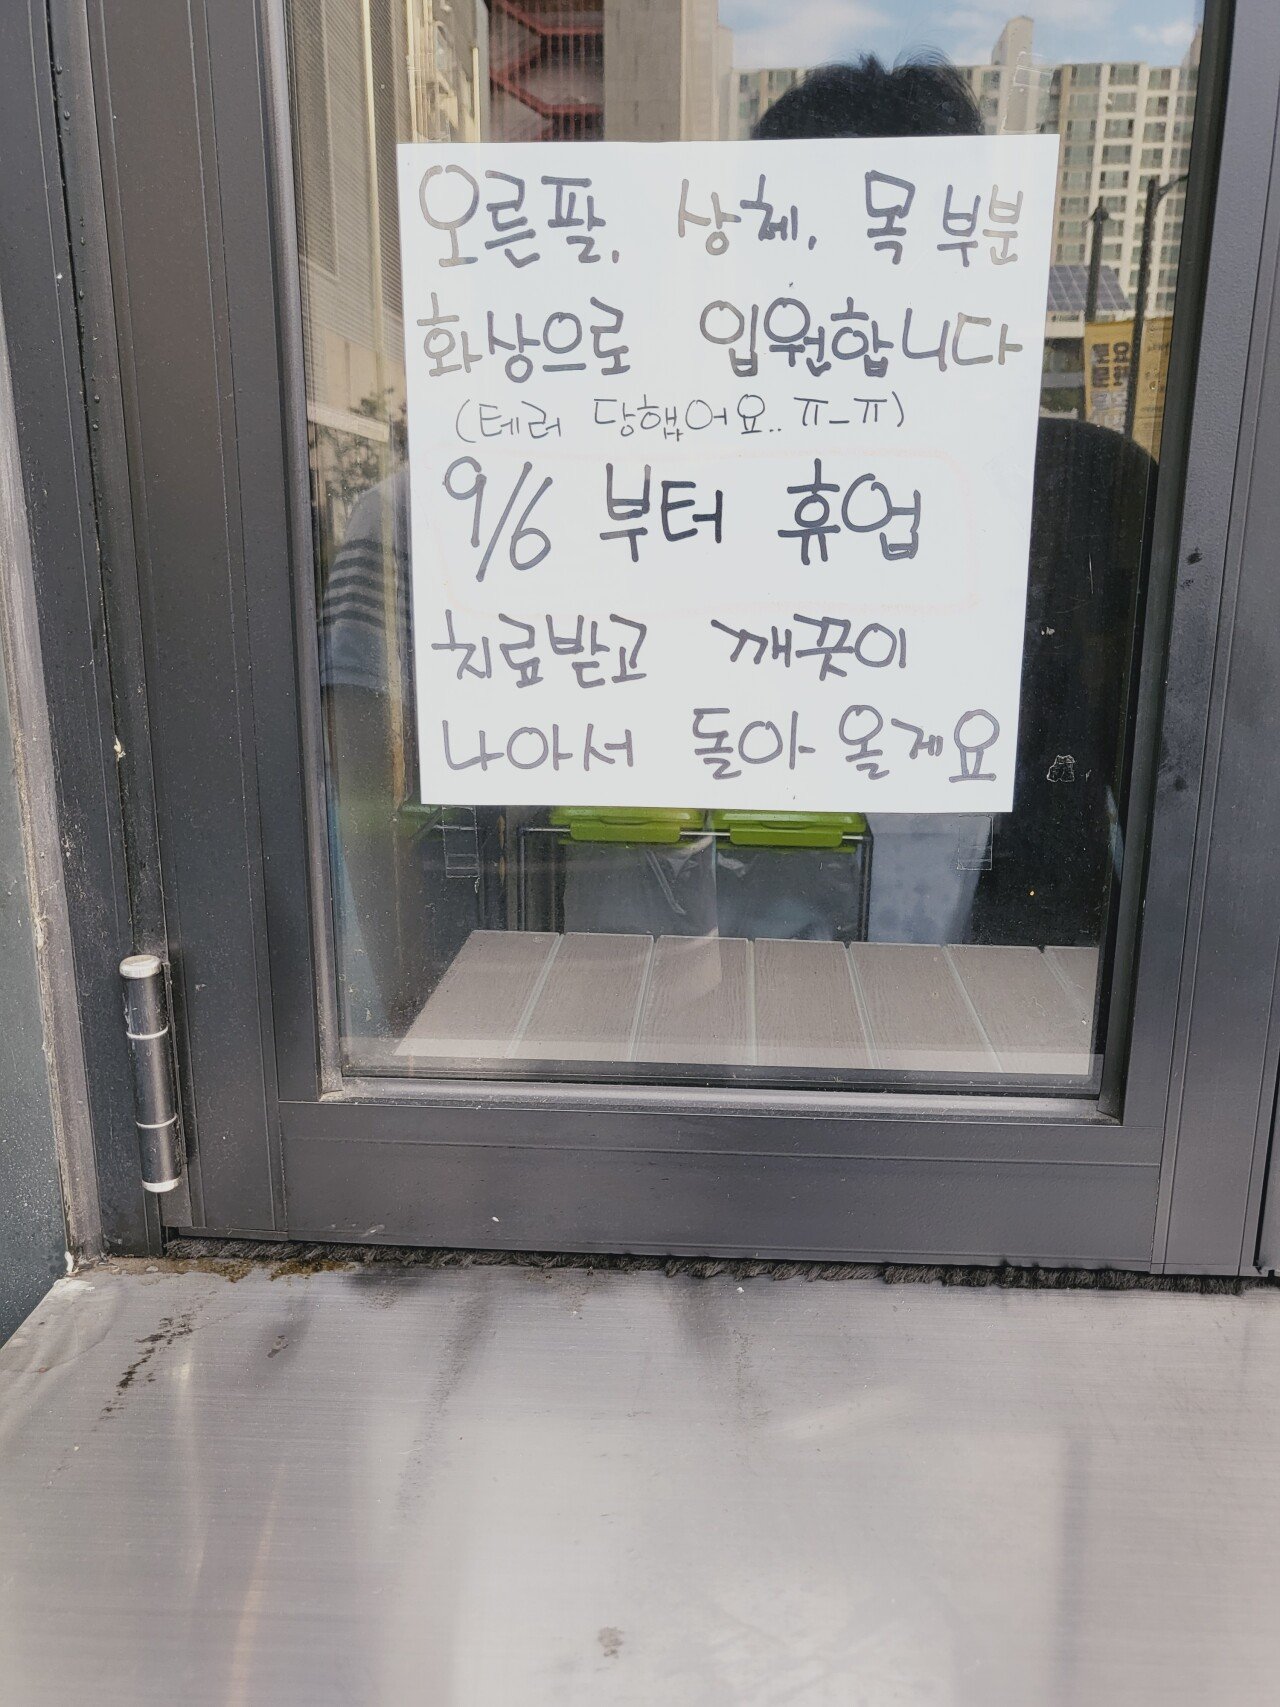 오른팔, 상체, 목 부분
화상으로 입원합니다
(테러 당햅어요.. ㅠ_ㅠ)
9/6 부터 휴업
치료받고 깨끗이
나아서 돌아올게요